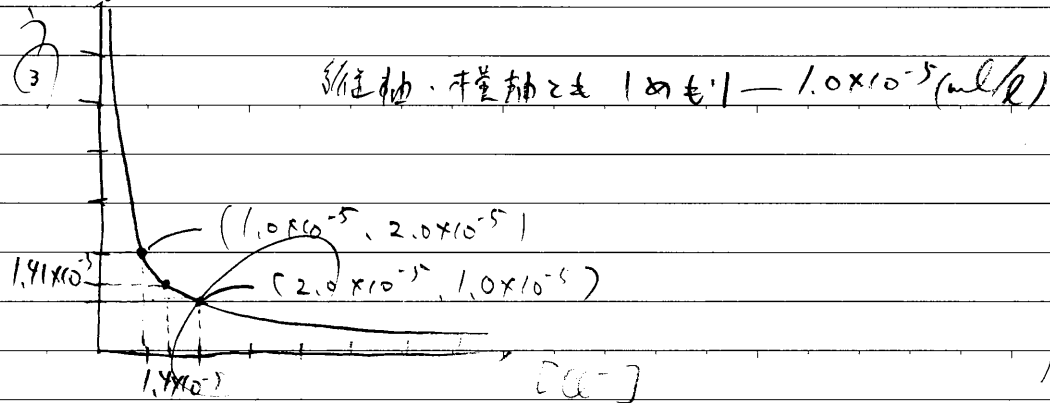 (3)
縦軸・横軸とも 1めもり — 1.0×10⁻⁵(mol/l)
(1.0×10⁻⁵、2.0×10⁻⁵)
1.41×10⁻⁵
(2.0×10⁻⁵、1.0×10⁻⁵)
1.4×10⁻⁵
[Cl⁻]